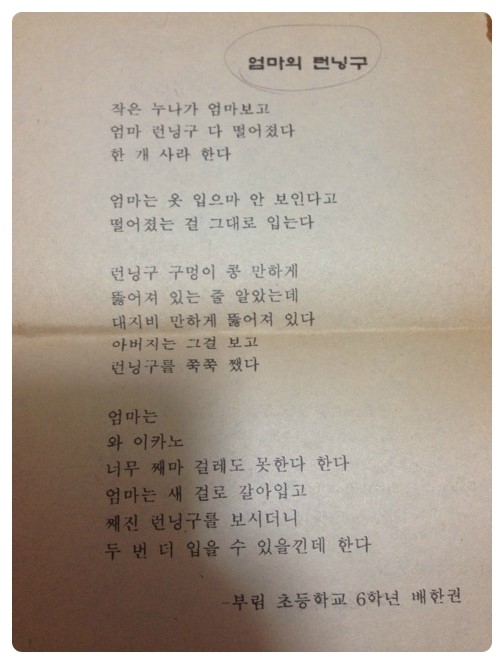 엄마의 런닝구
작은 누나가 엄마보고
엄마 런닝구 다 떨어졌다
한 개 사라 한다
엄마는 옷 입으마 안 보인다고
떨어졌는 걸 그대로 입는다
런닝구 구멍이 콩 만하게
뚫어져 있는 줄 알았는데
대지비 만하게 뚫어져 있다
아버지는 그걸 보고
런닝구를 쭉쭉 쨌다
엄마는
와 이카노
너무 째마 걸레도 못한다 한다
엄마는 새 걸로 갈아입고
째진 런닝구를 보시더니
두 번 더 입을 수 있을낀데 한다
-부림 초등학교 6학년 배한권